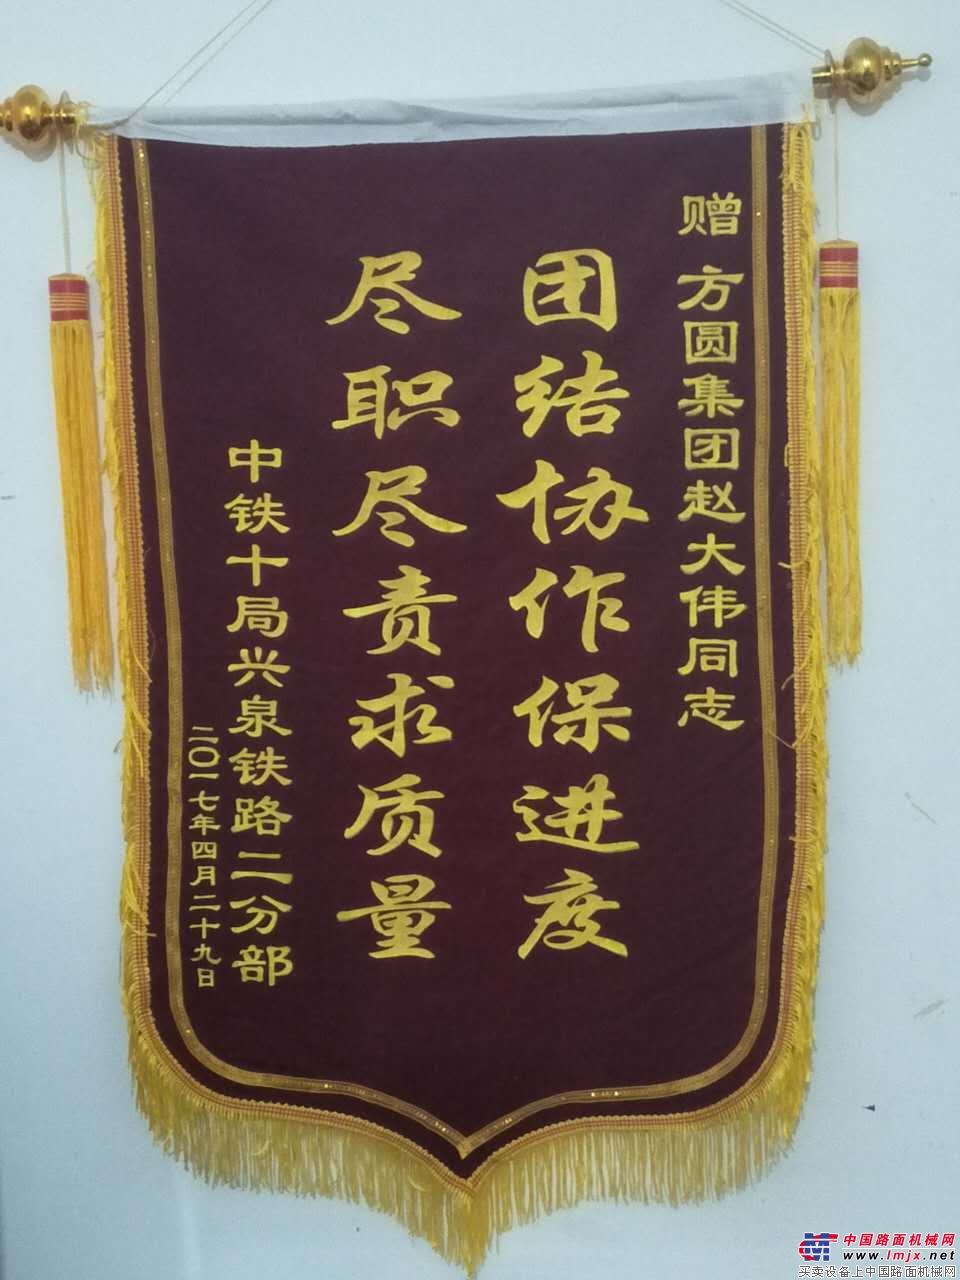 赠 方圆集团赵大伟同志
团结协作保进度
尽职尽责求质量
中铁十局兴泉铁路二分部
二〇一七年四月二十九日
中国路面机械网
www.lmjx.net
买卖设备上中国路面机械网